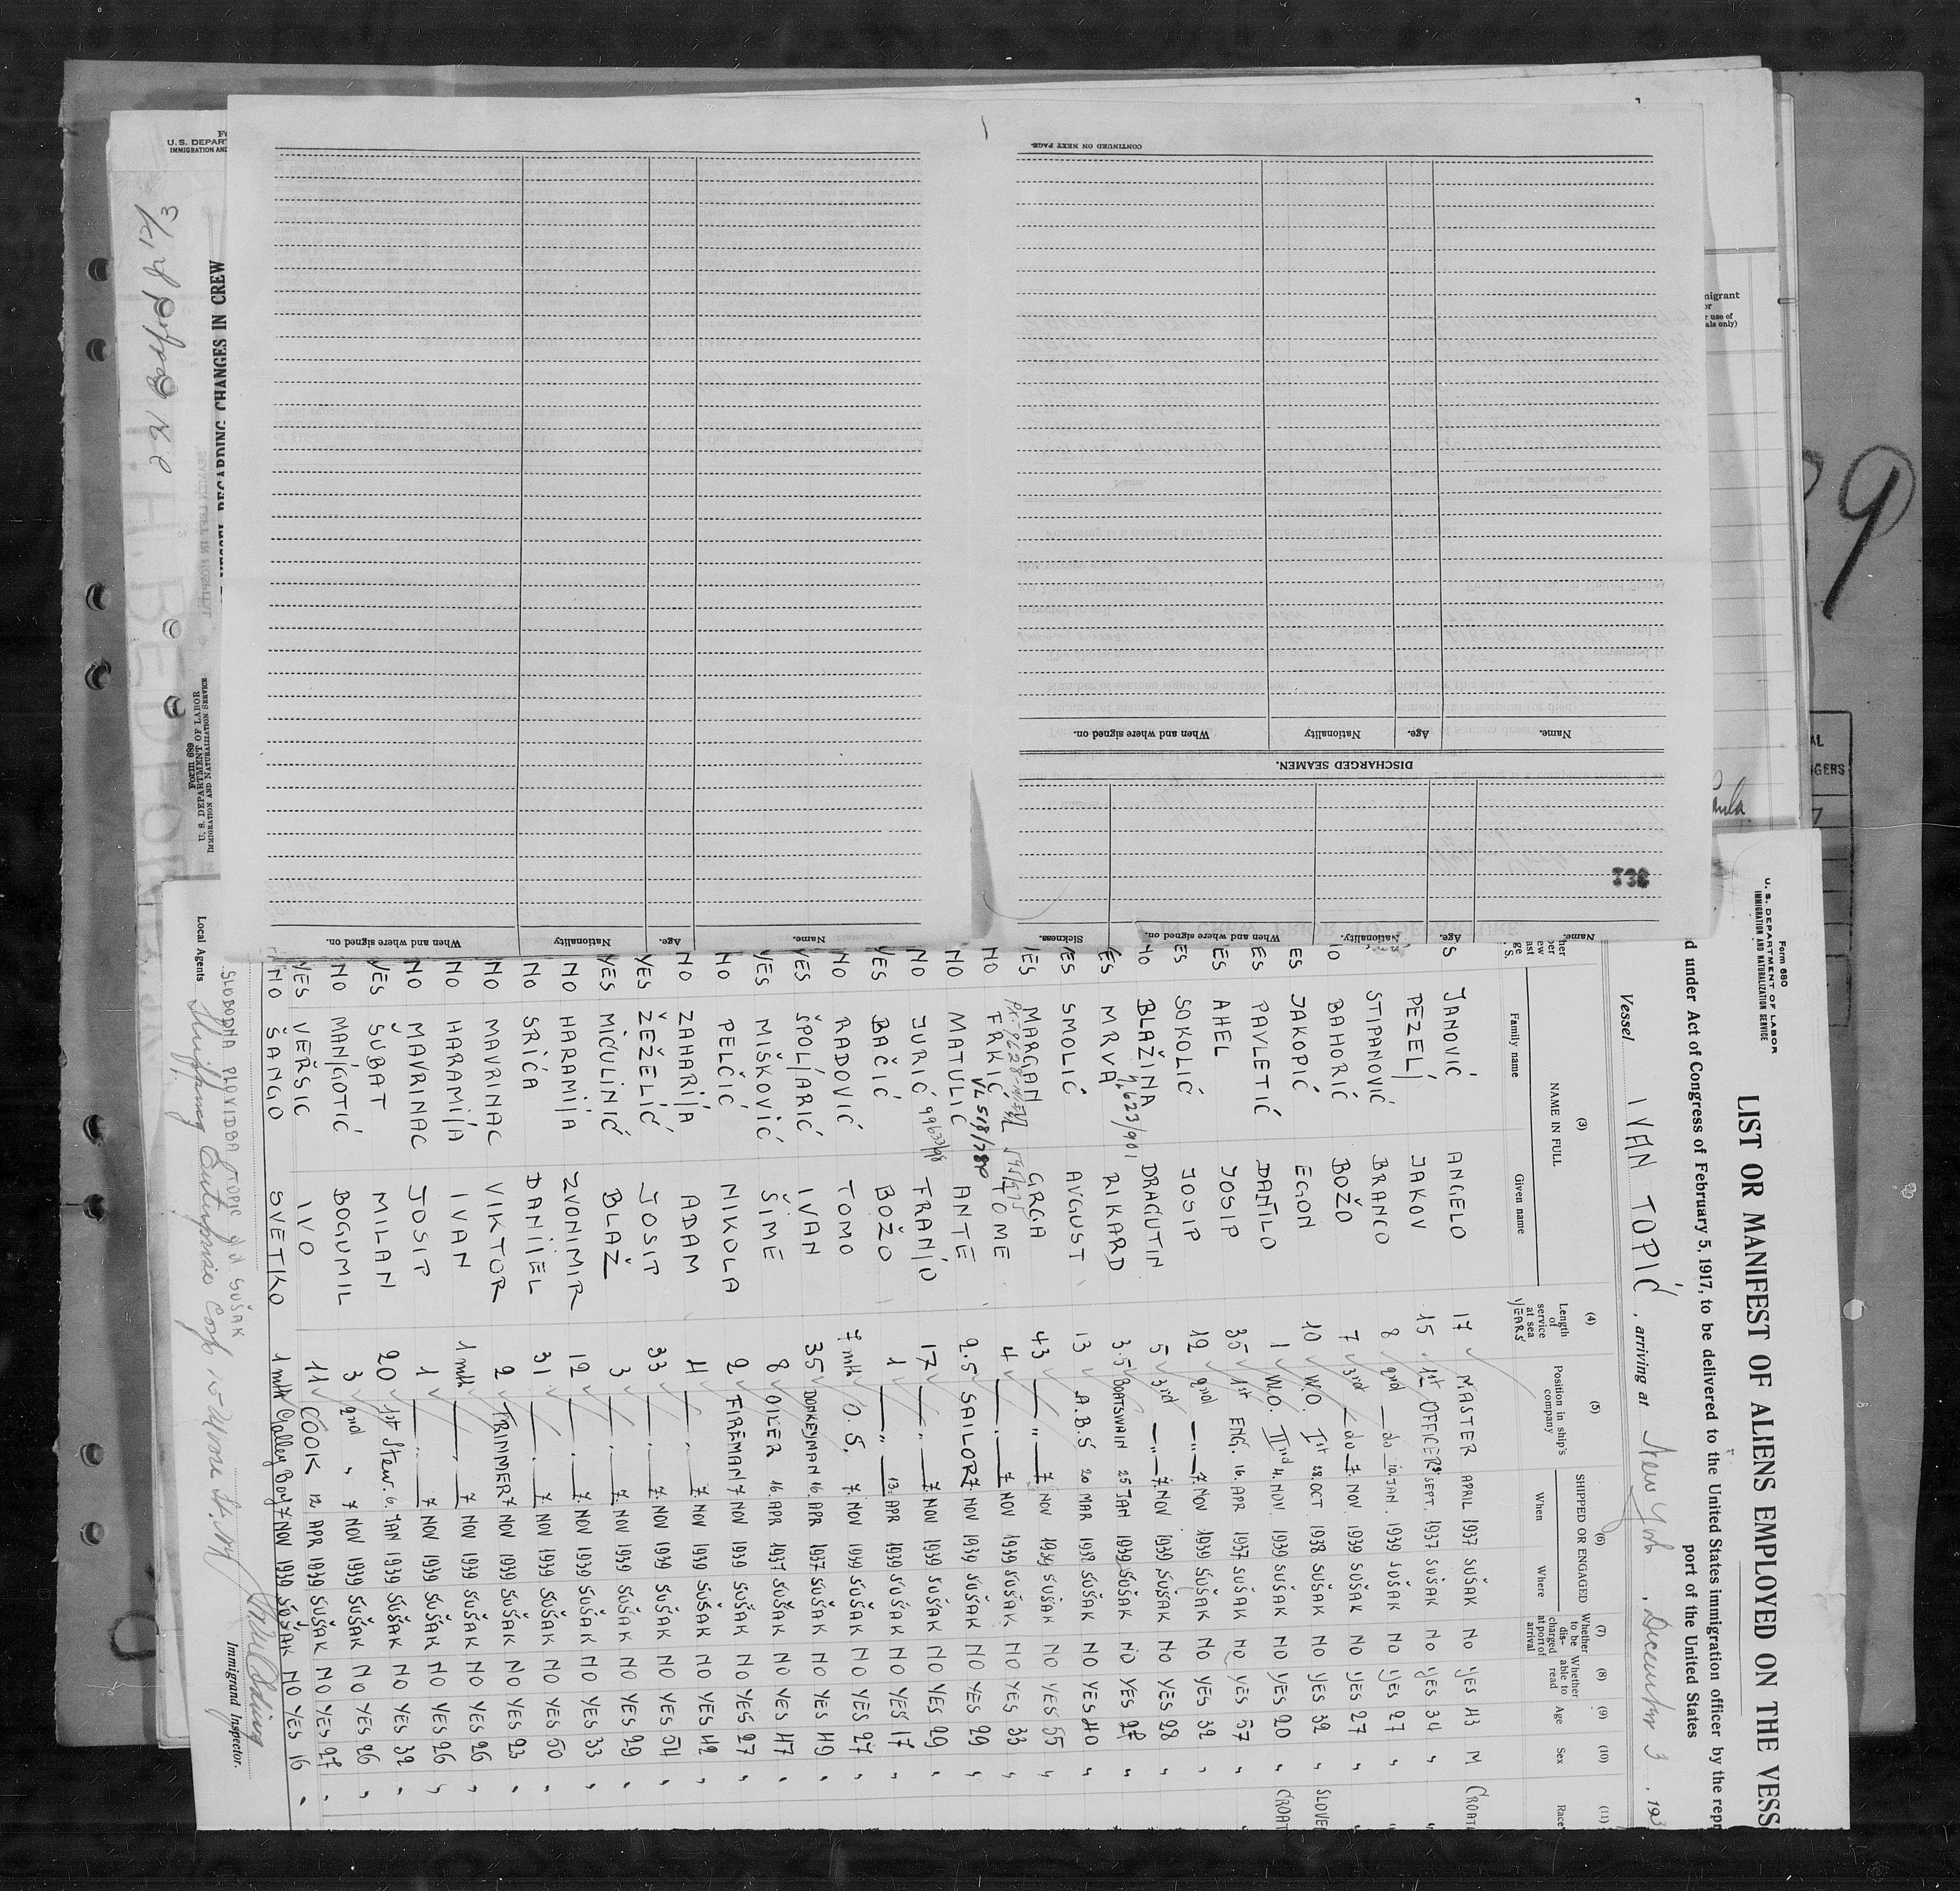 Form 680
U. S. DEPARTMENT OF LABOR
IMMIGRATION AND NATURALIZATION SERVICE
LIST OR MANIFEST OF ALIENS EMPLOYED ON THE VESS
d under Act of Congress of February 5, 1917, to be delivered to the United States immigration officer by the repr
port of the United States
Vessel IVAN TOPIĆ, arriving at New York, December 3, 193
(3) (4) (5) (6) (7) (8) (9) (10) (11)
NAME IN FULL
Family name Given name
Length of service at sea YEARS
Position in ship's company
SHIPPED OR ENGAGED
When Where
Whether to be discharged at port of arrival
Whether able to read
Age Sex Race
S JANOVIĆ ANGELO 17 MASTER APRIL 1937 SUŠAK NO YES 43 M CROAT
PEZELJ JAKOV 15 1st OFFICER SEPT. 1937 SUŠAK NO YES 34 "
STIPANOVIĆ BRANCO 8 2nd do 10. JAN. 1939 SUŠAK NO YES 27 "
BAHORIĆ BOŽO 7 3rd do 7. NOV. 1939 SUŠAK NO YES 27 "
ES JAKOPIĆ EGON 10 W.O. Ist 28. OCT. 1938 SUŠAK NO YES 32 " SLOVE
ES PAVLETIĆ DANILO 1 W.O. IInd 4. NOV. 1939 SUŠAK NO YES 20 " CROAT
ES AHEL JOSIP 35 1st ENG. 16. APR 1937 SUŠAK NO YES 57 "
ES SOKOLIĆ JOSIP 12 2nd " 7. NOV 1939 SUŠAK NO YES 32 "
NO BLAŽINA DRAGUTIN 5 3rd " 7. NOV 1939 SUŠAK NO YES 28 "
YES MRVA RIKARD 3.5 BOATSWAIN 25 JAN 1939 SUŠAK NO YES 28 "
YES SMOLIĆ AVGUST 13 A.B.S 20 MAR 1938 SUŠAK NO YES 40 "
YES MARGAN GRGA 43 " 7 NOV 1939 SUŠAK NO YES 55 "
NO FRKIĆ TOME 4 " 7 NOV 1939 SUŠAK NO YES 33 "
NO MATULIĆ ANTE 2.5 SAILOR 7 NOV 1939 SUŠAK NO YES 29 "
NO JURIĆ FRANJO 17 " 7 NOV 1939 SUŠAK NO YES 29 "
YES BAČIĆ BOŽO 1 " 13. APR 1939 SUŠAK NO YES 17 "
NO RADOVIĆ TOMO 7 mth O.S. 7 NOV 1939 SUŠAK NO YES 27 "
YES ŠPOLJARIĆ IVAN 35 DONKEYMAN 16. APR 1937 SUŠAK NO YES 49 "
YES MIŠKOVIĆ ŠIME 8 OILER 16. APR 1937 SUŠAK NO YES 47 "
NO PELČIĆ NIKOLA 2 FIREMAN 7 NOV 1939 SUŠAK NO YES 27 "
NO ZAHARIJA ADAM 4 " 7 NOV 1939 SUŠAK NO YES 42 "
YES ŽEŽELIĆ JOSIP 33 " 7. NOV 1939 SUŠAK NO YES 54 "
YES MIĆULINIĆ BLAŽ 3 " 7. NOV 1939 SUŠAK NO YES 29 "
NO HARAMIJA ZVONIMIR 12 " 7. NOV 1939 SUŠAK NO YES 33 "
NO SRIĆA DANIJEL 31 " 7 NOV 1939 SUŠAK NO YES 50 "
NO MAVRINAC VIKTOR 2 TRIMMER 7 NOV 1939 SUŠAK NO YES 23 "
NO HARAMIJA IVAN 1 mth " 7 NOV 1939 SUŠAK NO YES 26 "
NO MAVRINAC JOSIP 1 " 7 NOV 1939 SUŠAK NO YES 26 "
YES ŠUBAT MILAN 20 1st Stew. 6. JAN 1939 SUŠAK NO YES 32 "
NO MANJGOTIĆ BOGUMIL 3 2nd " 7 NOV 1939 SUŠAK NO YES 26 "
YES VERŠIC IVO 11 COOK 12 APR 1939 SUŠAK NO YES 28 "
NO ŠANGO SVETKO 1 mth Galley Boy 7 NOV 1939 SUŠAK NO YES 16 "
SLOBODNA PLOVIDBA TOPIĆ d.d SUŠAK
Local Agents
Immigrant Inspector.
CONTINUED ON NEXT PAGE.
Name. Age. Nationality When and where signed on.
DISCHARGED SEAMEN.
Name. Age. Nationality. When and where signed on. Sickness.
Name. Age. Nationality When and where signed on.
138
Form 689
U. S. DEPARTMENT OF LABOR
IMMIGRATION AND NATURALIZATION SERVICE
REGARDING CHANGES IN CREW
U.S. DEPART
IMMIGRATION AND
Bedford Jr 1/3
nigrant
or
r use of
als only)
9
AL
GERS
7